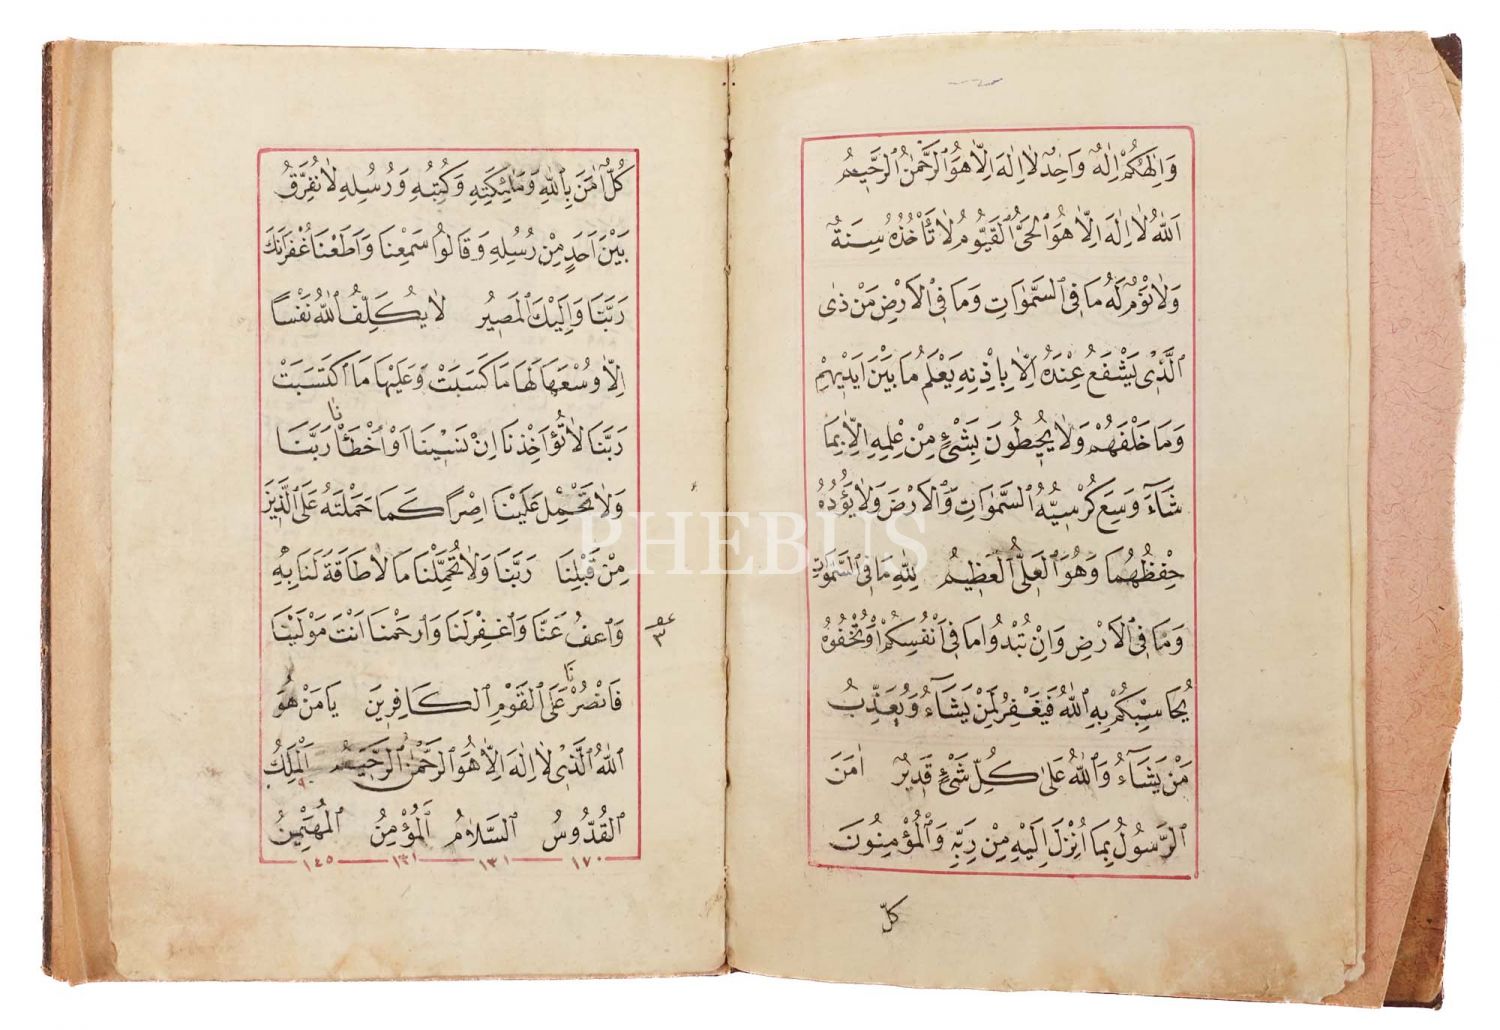 وَاِلٰهُكُمْ اِلٰهٌ وَاحِدٌ لَا اِلٰهَ اِلَّا هُوَ الرَّحْمٰنُ الرَّحِيمُ
اَللّٰهُ لَا اِلٰهَ اِلَّا هُوَ الْحَىُّ الْقَيُّومُ لَا تَأْخُذُهُ سِنَةٌ
وَلَا نَوْمٌ لَهُ مَا فِى السَّمٰوَاتِ وَمَا فِى الْاَرْضِ مَنْ ذَى
الَّذِى يَشْفَعُ عِنْدَهُ اِلَّا بِاِذْنِهِ يَعْلَمُ مَا بَيْنَ اَيْدِيْهِمْ
وَمَا خَلْفَهُمْ وَلَا يُحِيطُونَ بِشَىْءٍ مِنْ عِلْمِهِ اِلَّا بِمَا
شَاءَ وَسِعَ كُرْسِيُّهُ السَّمٰوَاتِ وَالْاَرْضَ وَلَا يَؤُدُهُ
حِفْظُهُمَا وَهُوَ الْعَلِىُّ الْعَظِيمُ لِلّٰهِ مَا فِى السَّمٰوَاتِ
وَمَا فِى الْاَرْضِ وَاِنْ تُبْدُوا مَا فِى اَنْفُسِكُمْ اَوْ تُخْفُوهُ
يُحَاسِبْكُمْ بِهِ اللّٰهُ فَيَغْفِرُ لِمَنْ يَشَاءُ وَيُعَذِّبُ
مَنْ يَشَاءُ وَاللّٰهُ عَلٰى كُلِّ شَىْءٍ قَدِيرٌ اٰمَنَ
الرَّسُولُ بِمَا اُنْزِلَ اِلَيْهِ مِنْ رَبِّهِ وَالْمُؤْمِنُونَ
كلّ
كُلٌّ اٰمَنَ بِاللّٰهِ وَمَلٰئِكَتِهِ وَكُتُبِهِ وَرُسُلِهِ لَا نُفَرِّقُ
بَيْنَ اَحَدٍ مِنْ رُسُلِهِ وَقَالُوا سَمِعْنَا وَاَطَعْنَا غُفْرَانَكَ
رَبَّنَا وَاِلَيْكَ الْمَصِيرُ لَا يُكَلِّفُ اللّٰهُ نَفْسًا
اِلَّا وُسْعَهَا لَهَا مَا كَسَبَتْ وَعَلَيْهَا مَا اكْتَسَبَتْ
رَبَّنَا لَا تُؤَاخِذْنَا اِنْ نَسِينَا اَوْ اَخْطَأْنَا رَبَّنَا
وَلَا تَحْمِلْ عَلَيْنَا اِصْرًا كَمَا حَمَلْتَهُ عَلَى الَّذِينَ
مِنْ قَبْلِنَا رَبَّنَا وَلَا تُحَمِّلْنَا مَا لَا طَاقَةَ لَنَا بِهِ
وَاعْفُ عَنَّا وَاغْفِرْ لَنَا وَارْحَمْنَا اَنْتَ مَوْلٰينَا
فَانْصُرْنَا عَلَى الْقَوْمِ الْكَافِرِينَ يَا مَنْ هُوَ
اللّٰهُ الَّذِى لَا اِلٰهَ اِلَّا هُوَ الرَّحْمٰنُ الرَّحِيمُ الْمَلِكُ
الْقُدُّوسُ السَّلَامُ الْمُؤْمِنُ الْمُهَيْمِنُ
١٧٠ ١٣١ ١٤٥
PHEBUS